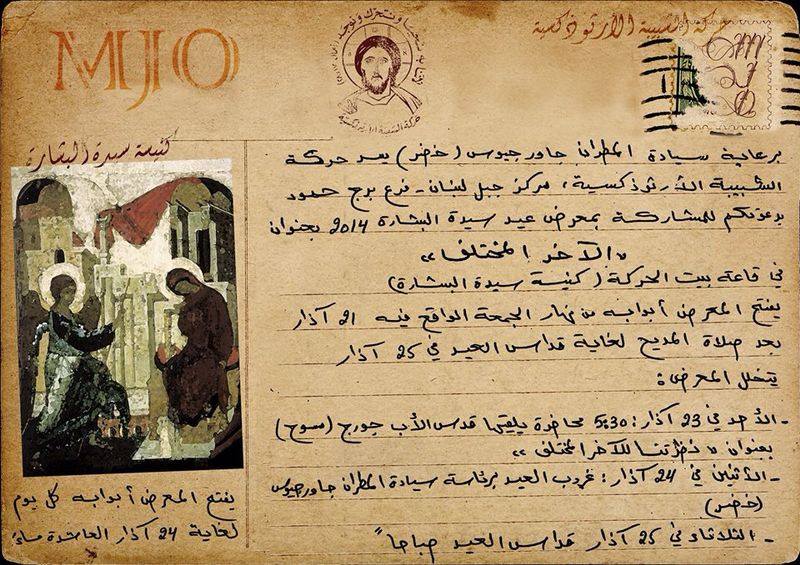 MJO
به نحيا ونتحرك ونوجد
حركة الشبيبة الأرثوذكسية
الشبيبة الأرثوذكسية
M
J
O
كنيسة سيدة البشارة
برعاية سيادة المطران جاورجيوس (خضر) يسر حركة
الشبيبة الأرثوذكسية، مركز جبل لبنان - فرع برج حمود
بدعوتكم للمشاركة بمعرض عيد سيدة البشارة 2014 بعنوان
"الآخر المختلف"
في قاعة بيت الحركة (كنيسة سيدة البشارة)
يفتح المعرض أبوابه من نهار الجمعة الواقع فيه 21 آذار
بعد صلاة المديح لغاية قداس العيد في 25 آذار
يتخلل المعرض:
- الأحد في 23 آذار: 5:30 محاضرة يلقيها قدس الأب جورج (مسوح)
بعنوان "نظرتنا للآخر المختلف"
- الأثنين في 24 آذار: غروب العيد برئاسة سيادة المطران جاورجيوس
(خضر)
- الثلاثاء في 25 آذار قداس العيد صباحاً
يفتح المعرض أبوابه كل يوم
لغاية 24 آذار العاشرة مساءً